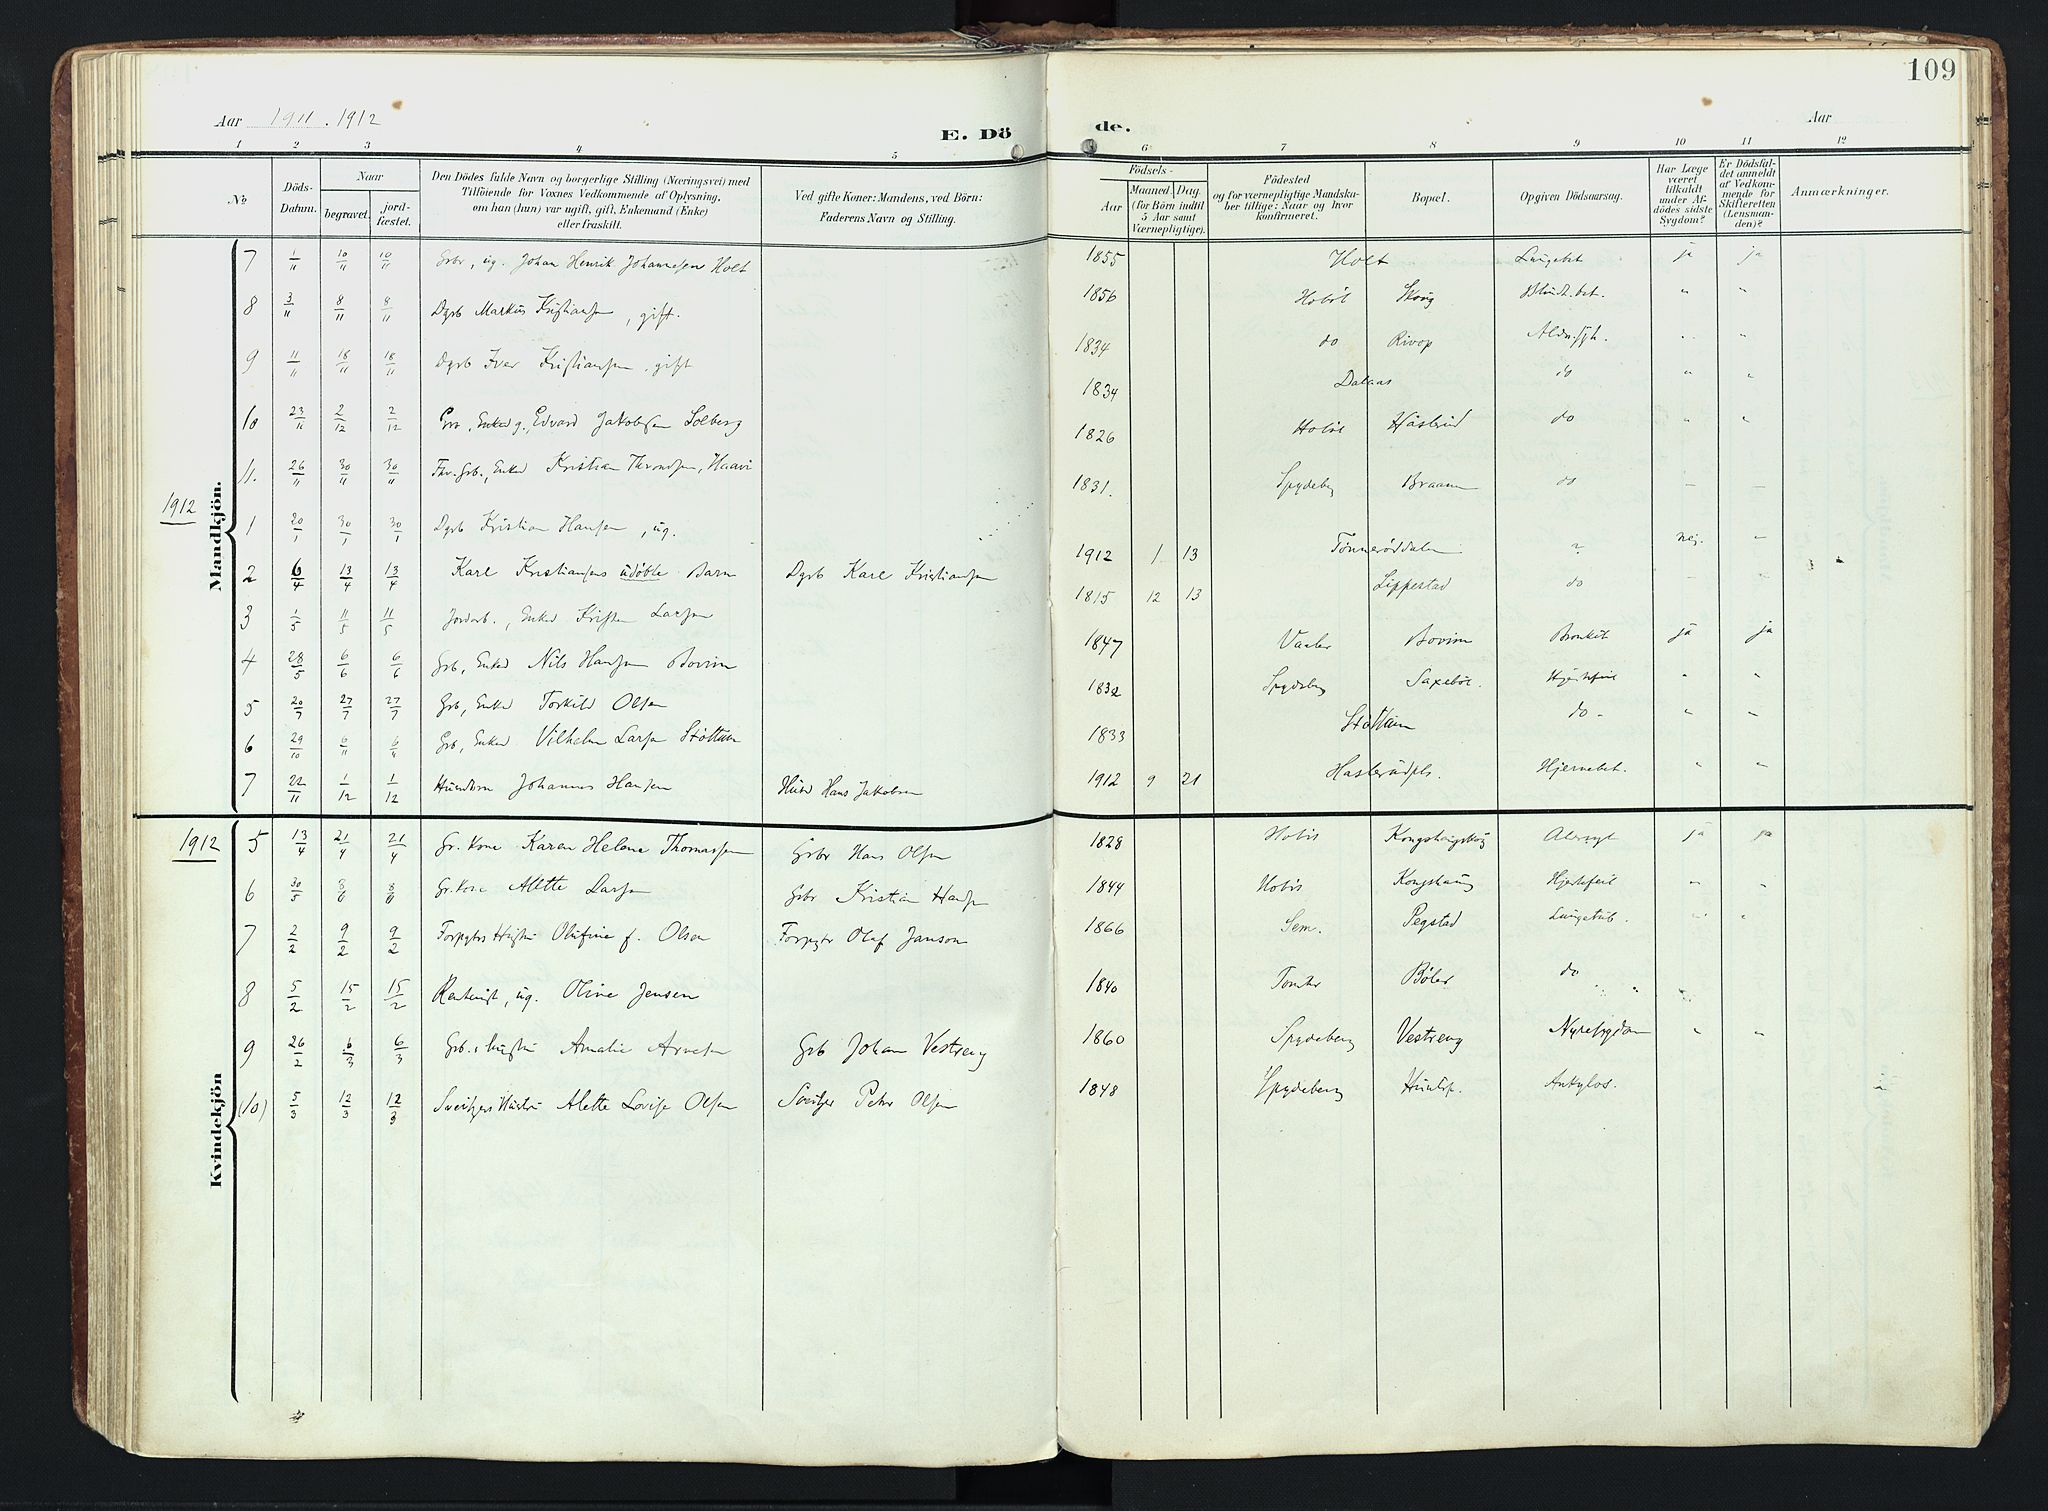 109
Aar 1911. 1912
E. Dö de.
Aar
1 2 3 4 5 6 7 8 9 10 11 12
No
Döds-Datum.
Naar
begravet.
jord-fæstet.
Den Dödes fulde Navn og borgerlige Stilling (Næringsvei) med
Tilföiende for Voxnes Vedkommende af Oplysning,
om han (hun) var ugift, gift, Enkemand (Enke)
eller fraskilt.
Ved gifte Koner: Mandens, ved Börn:
Faderens Navn og Stilling.
Födsels-
Aar
Maaned. Dag.
(for Börn indtil
5 Aar samt
Værnepligtige).
Födested
og for værnepligtige Mandska-
ber tillige: Naar og hvor
konfirmeret.
Bopæl.
Opgiven Dödsaarsag.
Har Læge
været
tilkaldt
under Af-
dödes sidste
Sygdom?
Er Dödsfal-
det anmeldt
af Vedkom-
mende for
Skifteretten
(Lensman-
den)?
Anmærkninger.
Mandkjön.
7 1/11 10/11 10/11 Grbr, ug. Johan Henrik Johannesen Holt 1855 Holt ja ja
8 3/11 8/11 8/11 Dgrb Markus Kristiansen, gift. 1856 Hobøl Skoug "  "
9 11/11 18/11 18/11 Dgrb Iver Kristiansen, gift 1834 do " "
10 23/11 2/12 2/12 Edvard Jakobsen Solberg 1834 do " "
11. 26/11 30/11 30/11 Kristian Throndsen, Haavi 1826 Hobøl do " "
1912
1 20/1 30/1 30/1 Dgrb Kristian Hansen, ug. 1831. Spydeberg Braaum do - -
2 6/4 13/4 13/4 Karl Kristiansens udøbte Barn Dgrb Karl Kristiansen 1912 1 13 Tønnerøddalen ? nej. "
3 1/5 11/5 11/5 Jordarb., Enkem Kristen Larsen 1815 12 13 Lippestad do - -
4 28/5 6/6 6/6 Grb, Enkem Nils Hansen Bovim 1847 Vaaler Bovim Bronkit ja ja
5 20/7 27/7 27/7 Grb, Enkem Torkild Olsen 1832 Spydeberg Saxebøl. Hjertefeil " "
6 29/10 6/11 Grb, Enkem Vilhelm Larsen Støttum 1833 Støttum do - " "
7 22/11 1/12 1/12 Johannes Hansen Hans Jakobsen 1912 9 21 Haslerudpls. Hjernebet. " "
1912
Kvindekjön
5 13/4 21/4 21/4 Gr. Kone Karen Helene Thomassen Grbr Hans Olsen 1828 Hobøl ja ja
6 30/5 8/6 8/6 Gr. Kone Alette Larsen Grbr Kristian Hansen 1844 Hobøl Kongshaug Hjertefeil " "
7 2/2 9/2 9/2 Olufine f. Olsen Forpgtr Olaf Janson 1866 Sem. Pegstad Lungetub. " "
8 5/2 15/2 15/2 ug. Oline Jensen 1840 Tomter Bøler do
9 26/2 6/3 6/3 Amalie Grb Johan Vestreng 1860 Spydeberg Vestreng Nyresygdom " "
(10) 5/3 12/3 12/3 Sveitzers Hustru Alette Lovise Olsen Sveitzer Peter Olsen 1848 Spydeberg Ankylos.